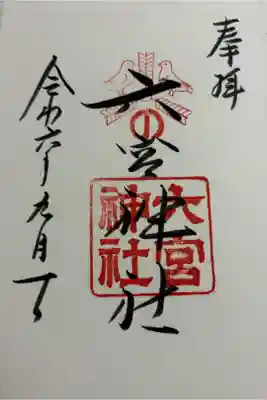 奉拝
六の宮神社
六宮
神社
令和六年九月一日